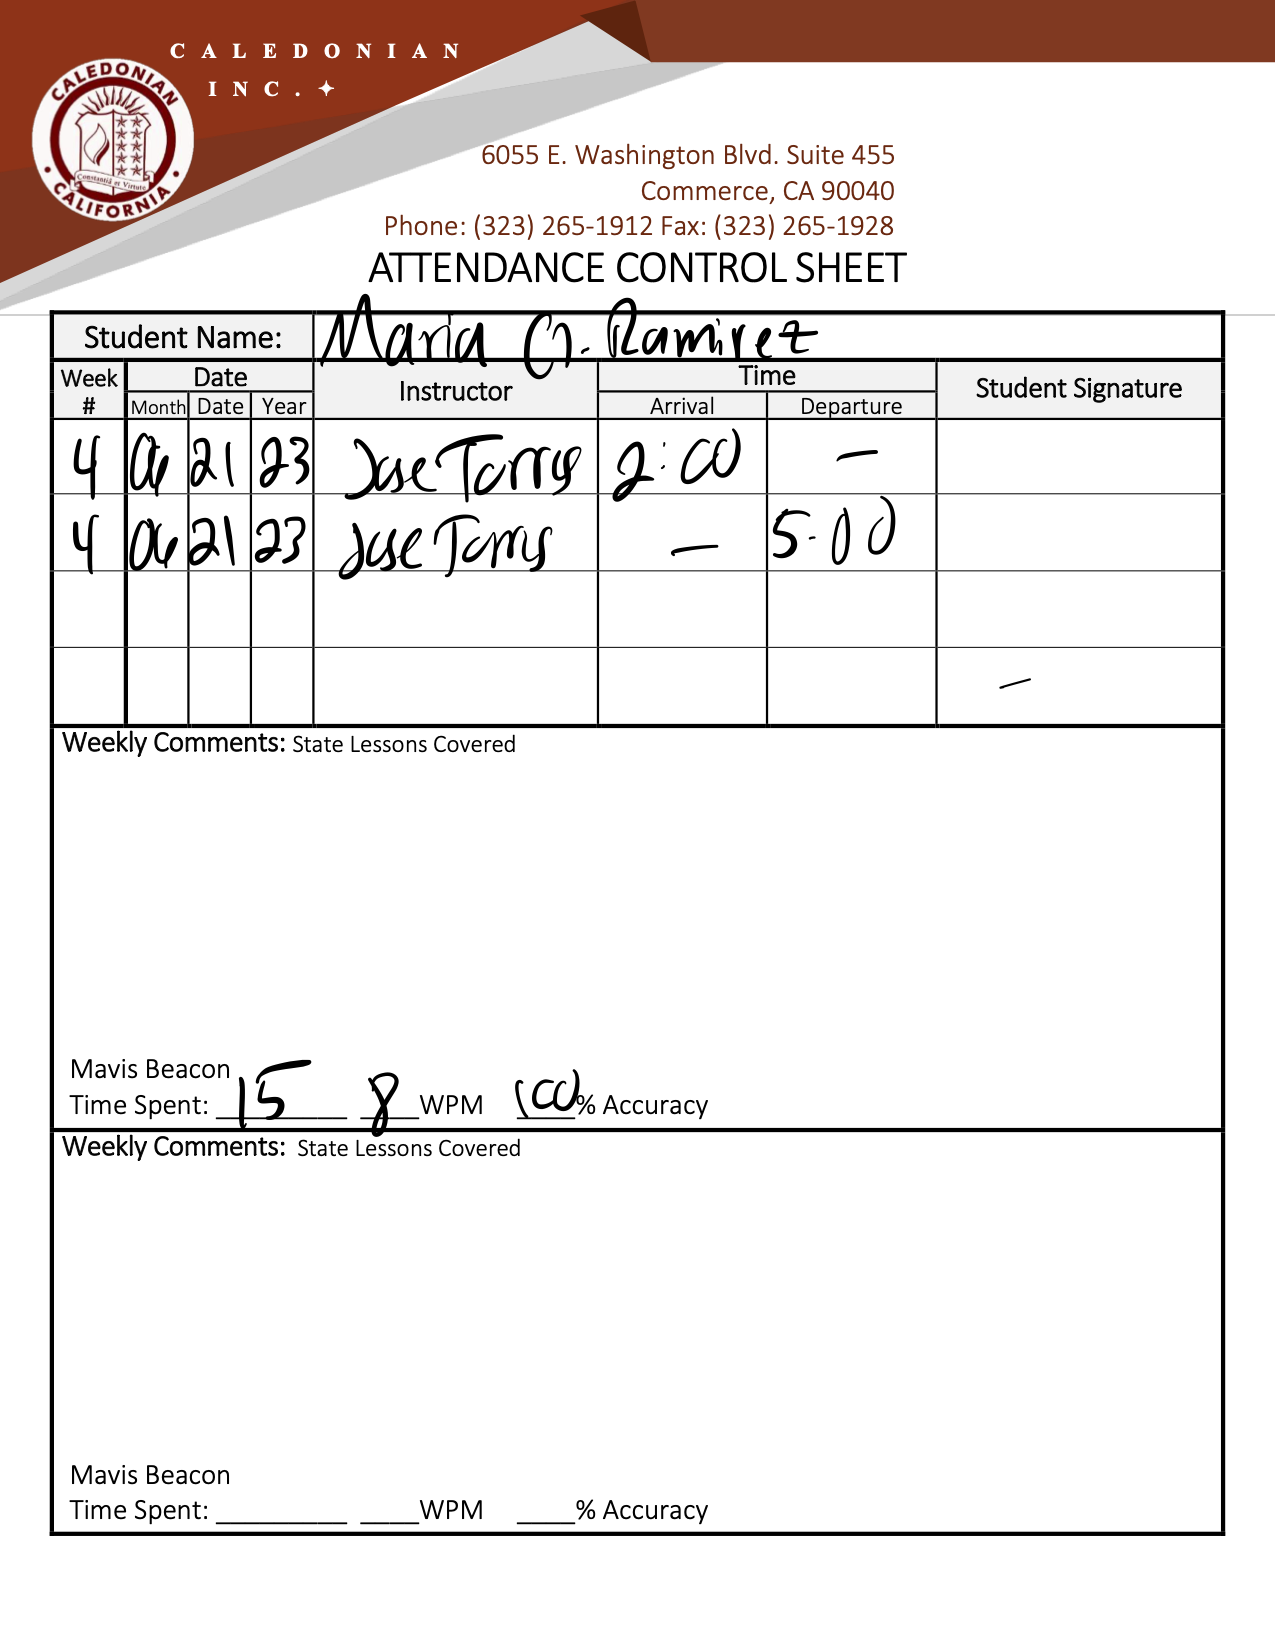 CALEDONIAN
INC.✦
CALEDONIAN
Constantia et Virtute
• CALIFORNIA •
6055 E. Washington Blvd. Suite 455
Commerce, CA 90040
Phone: (323) 265-1912 Fax: (323) 265-1928
ATTENDANCE CONTROL SHEET
Student Name: Maria G. Ramirez
Week # Date Instructor Time Student Signature
Month Date Year Arrival Departure
4 06 21 23 Jose Torres 2:00 –
4 06 21 23 Jose Torres – 5:00
–
Weekly Comments: State Lessons Covered
Mavis Beacon
Time Spent: 15 8 WPM 100% Accuracy
Weekly Comments: State Lessons Covered
Mavis Beacon
Time Spent: _________ ____WPM ____% Accuracy